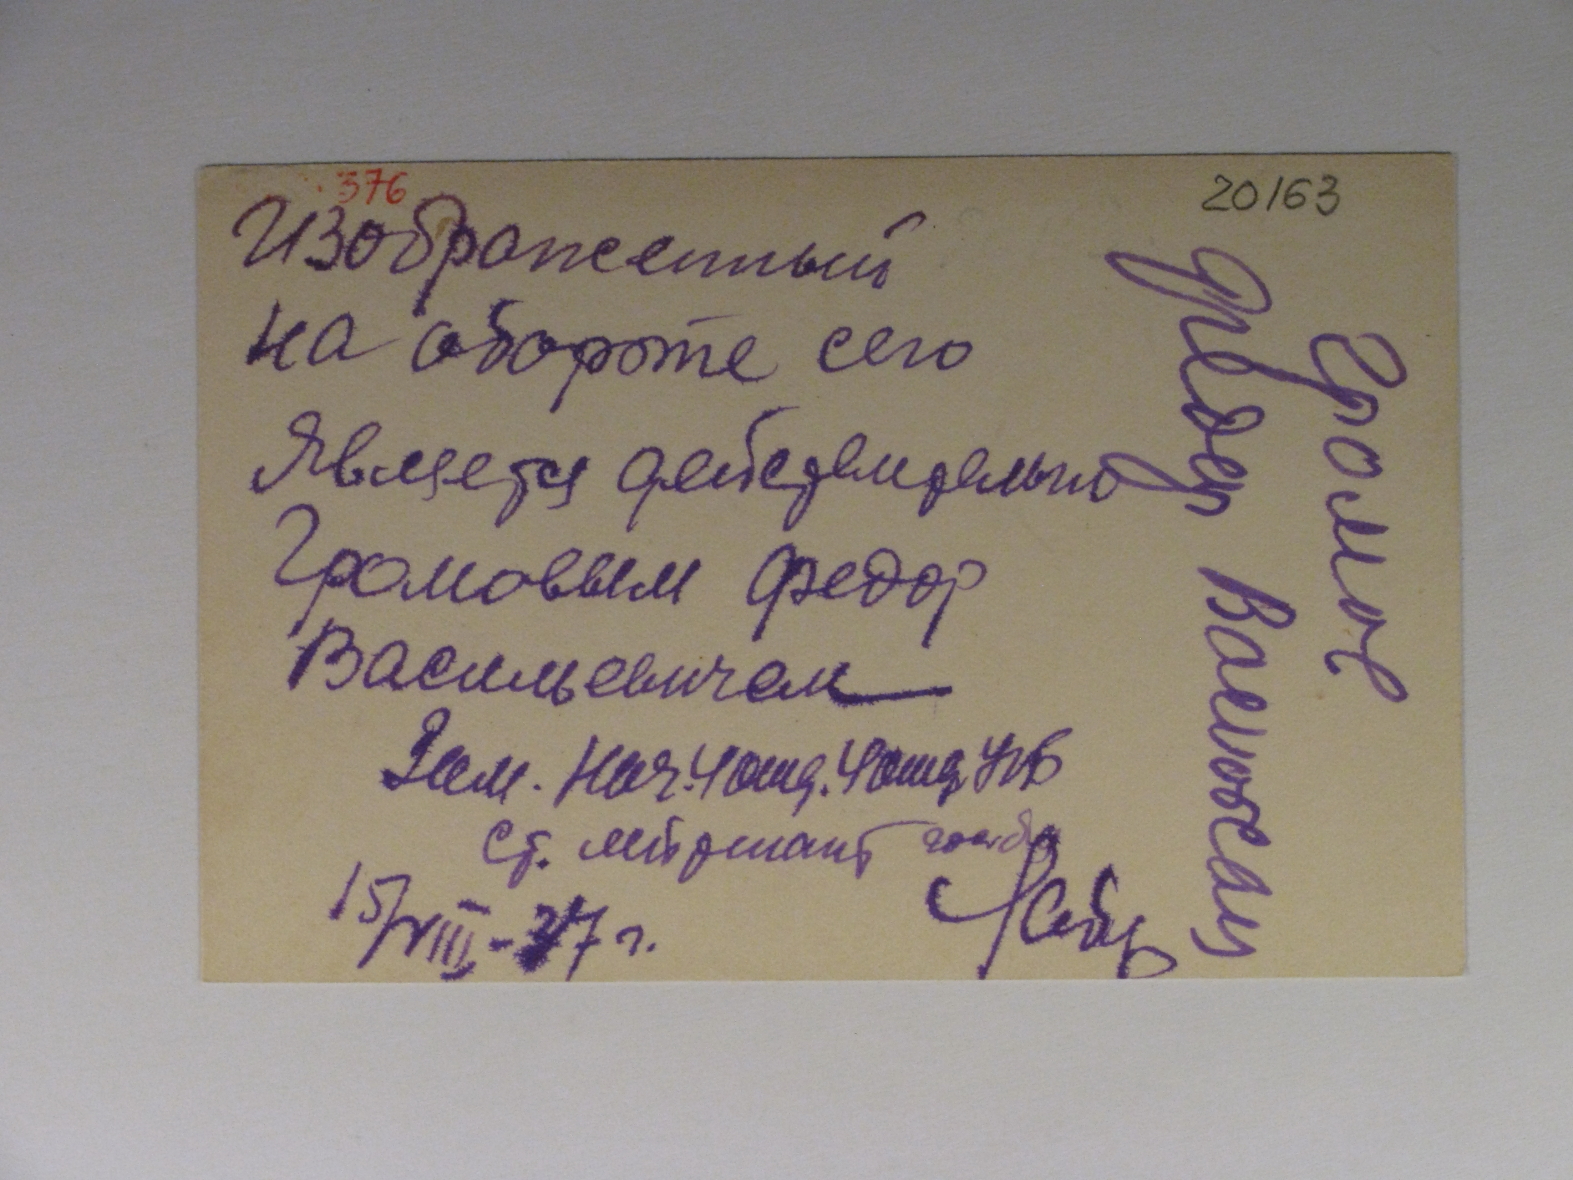 376
20163
Изображенный
на обороте сего
Является действительно
Громовым Федор
Васильевичем
Зам. Нач. 4 отд. 4 отд. УГБ
ст. лейтенант госбез
15/VIII-37 г.
Громов
Федор Васильевич